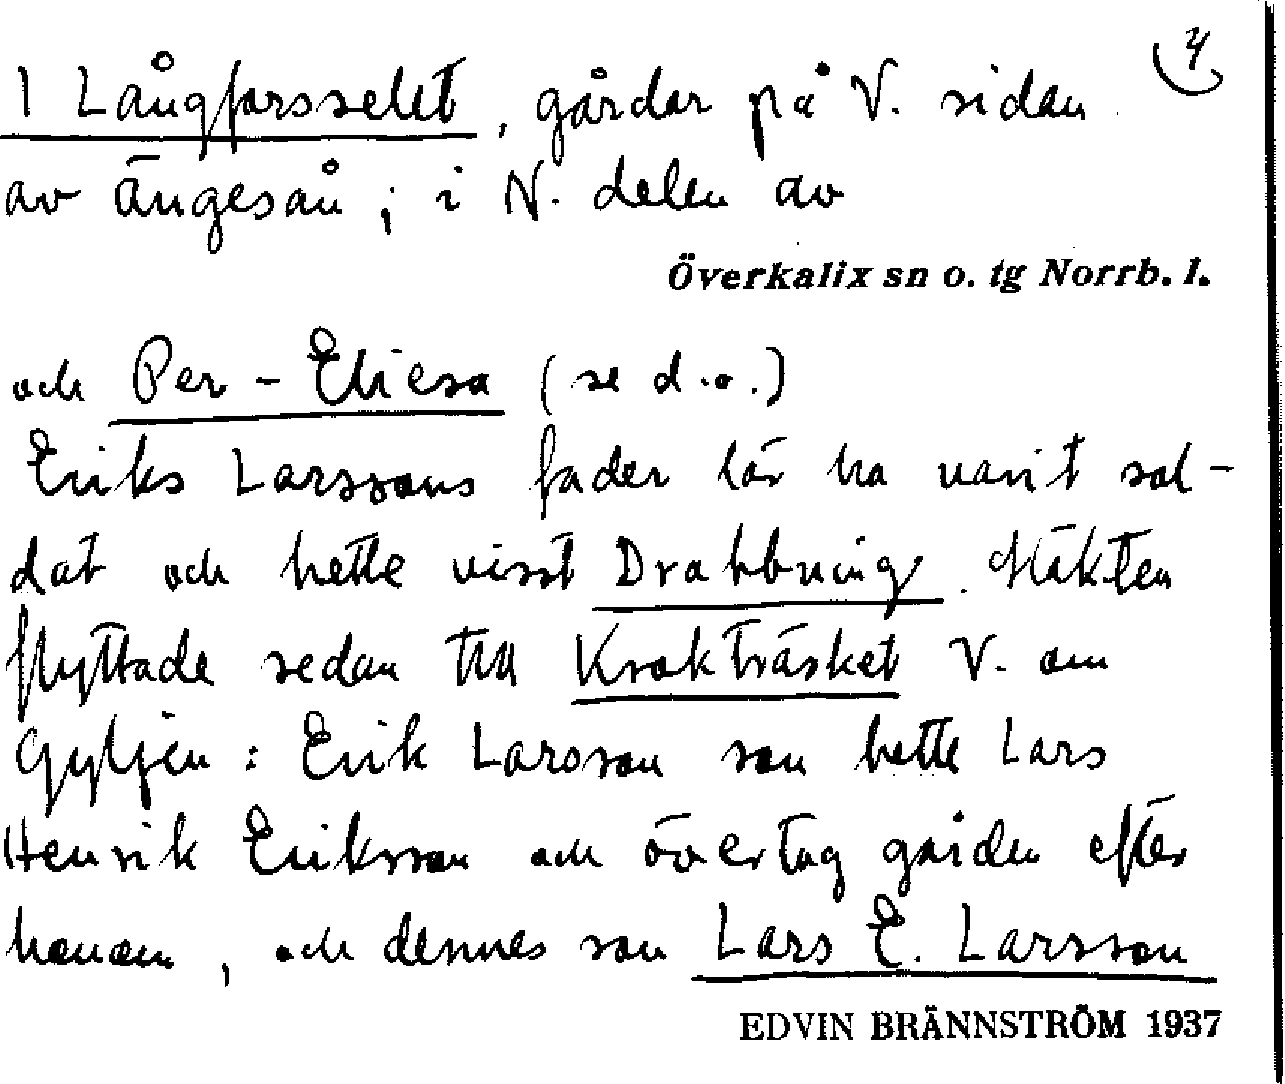 4
I Långforsselet, gårdar på V. sidan
av ängesån; i N. delen av
Överkalix sn o. tg Norrb. l.
och Per-Eliesa (se d.o.)
Eriks Larssons fader lär ha varit sol-
dat och hette visst Drabbning. Släkten
flyttade sedan till Kroktrásket V. om
Gyljen: Erik Larsson son hette Lars
Henrik Eriksson och övertog gården efter
honom, och dennes son Lars E. Larsson
EDVIN BRÄNNSTRÖM 1937